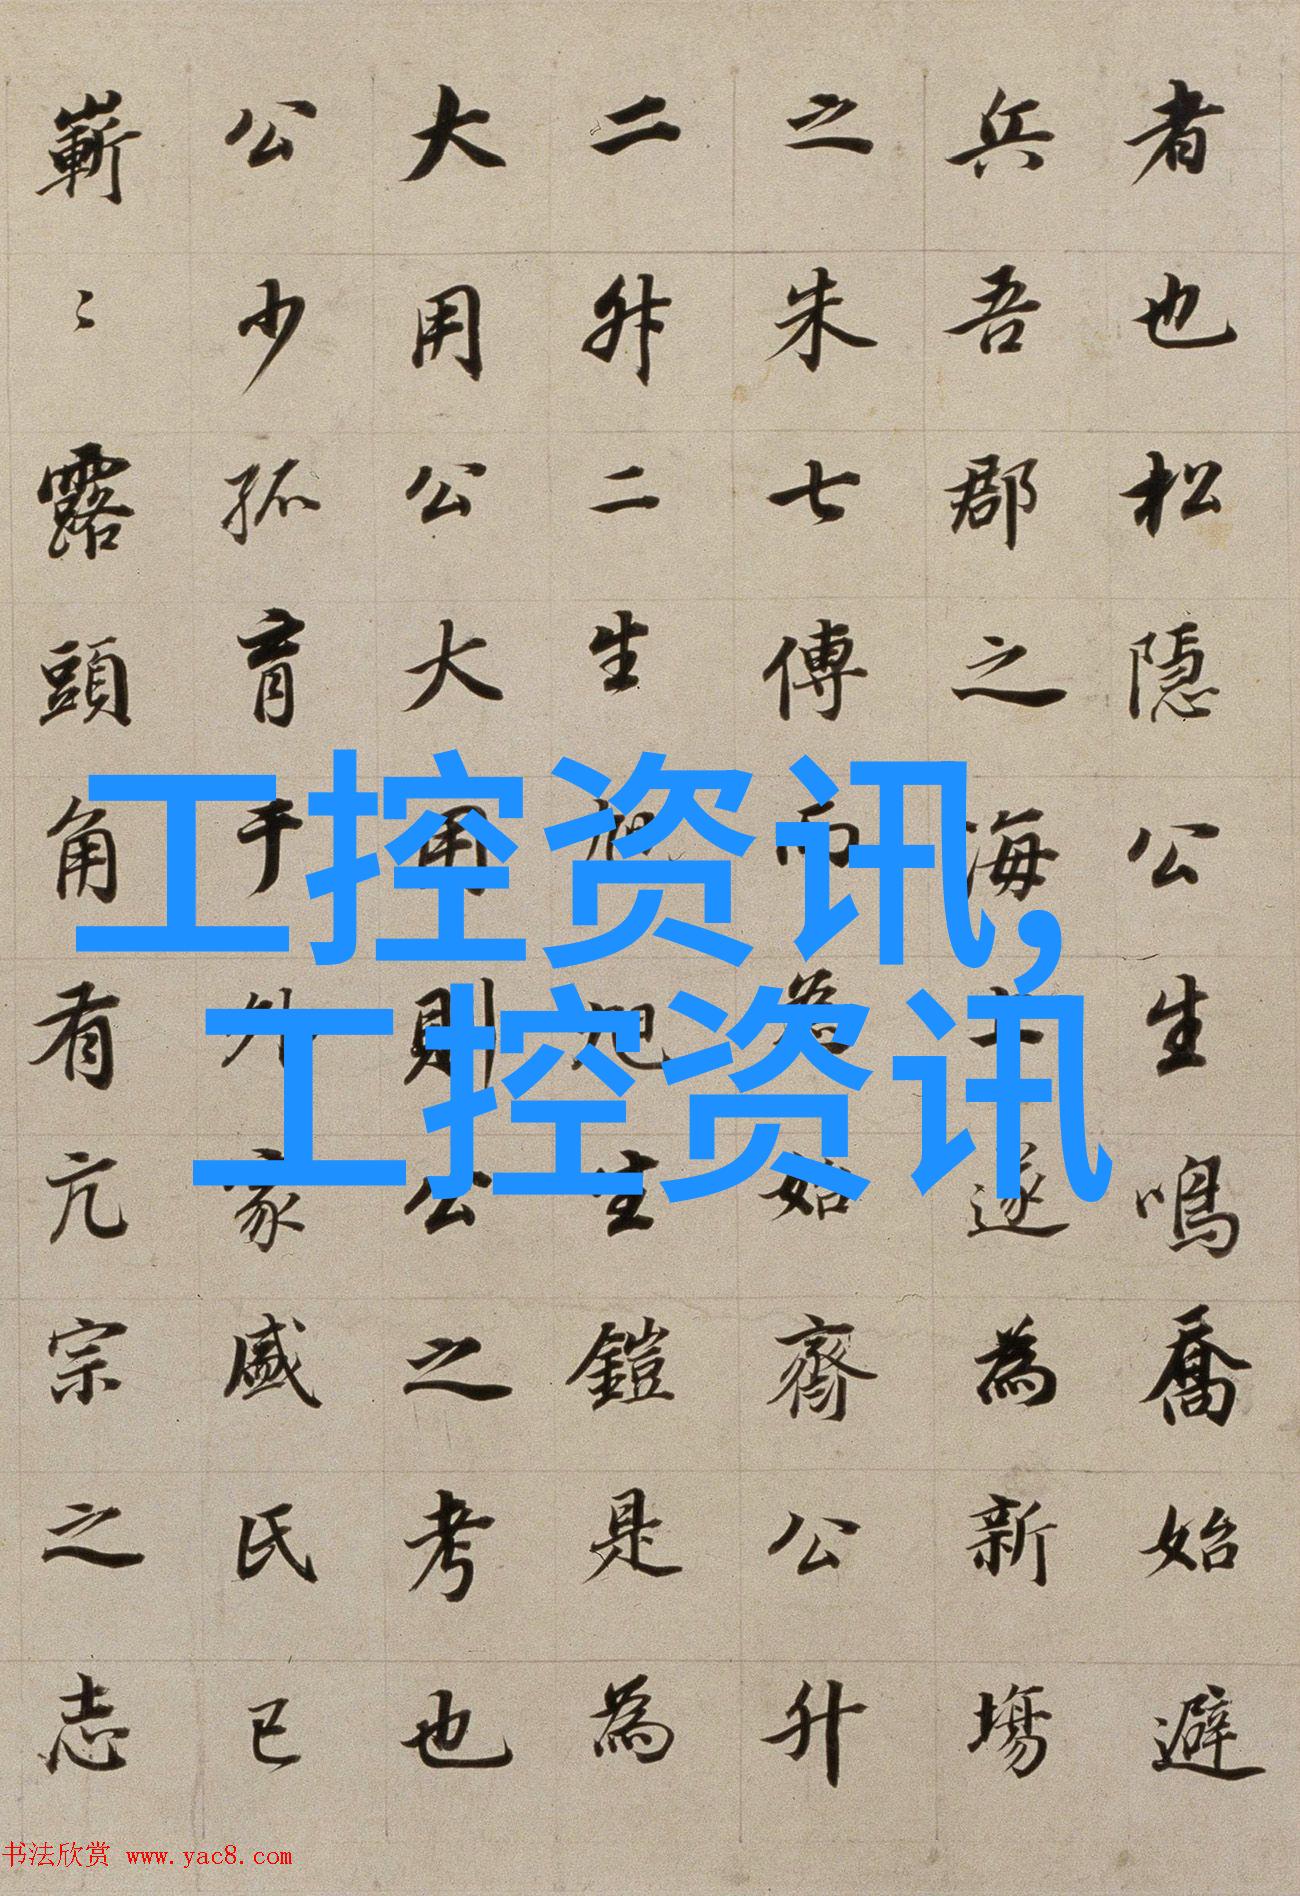 者也松隱公生鳴喬始避
兵吾郡之海上遂為新塲
之朱七傳而始齊公升
二升二生旭旭生鎧是為
大用公大用則公之考也
公少孤育于外家戚氏已
嶄〻露頭角有亢宗之志
工控资讯,
工控资讯
书法欣赏 www.yac8.com